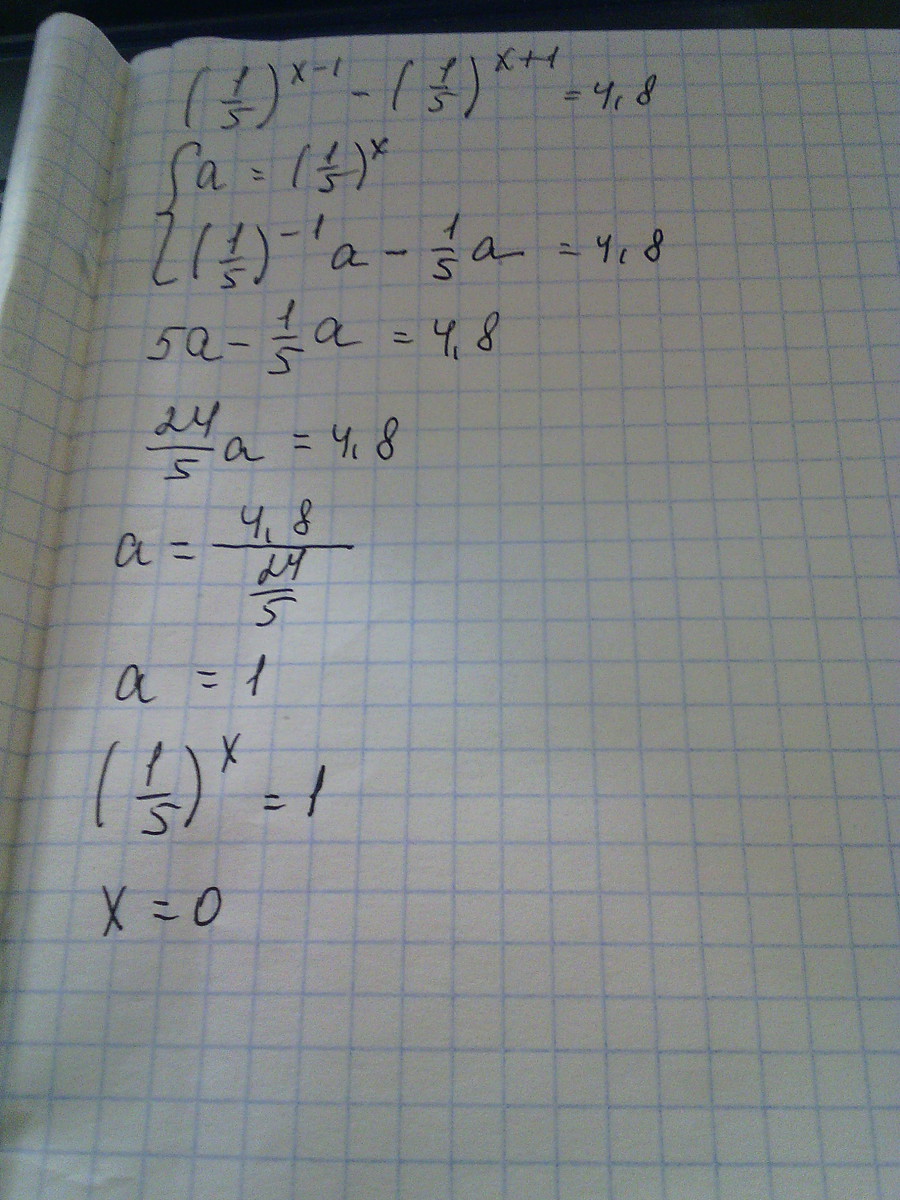 (1/5)^(x-1) - (1/5)^(x+1) = 4,8
{ a = (1/5)^x
(1/5)^(-1) a - 1/5 a = 4,8
5a - 1/5 a = 4,8
24/5 a = 4,8
a = 4,8 / (24/5)
a = 1
(1/5)^x = 1
x = 0